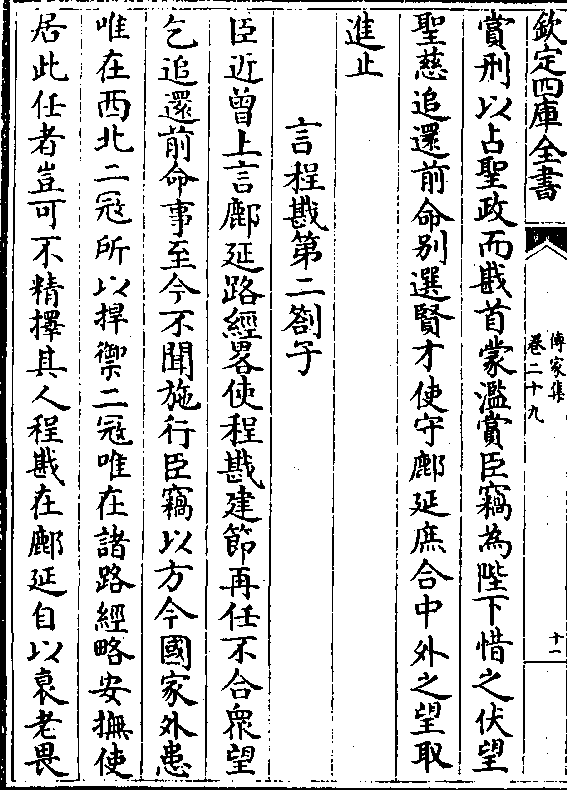 欽定四庫全書
傳家集
卷二十九
十一
賞刑以占聖政而戡首蒙濫賞臣竊為陛下惜之伏望
聖慈追還前命别選賢才使守鄜延庶合中外之望取
進止
言程戡第二劄子
臣近曾上言鄜延路經畧使程戡建節再任不合衆望
乞追還前命事至今不聞施行臣竊以方今國家外患
唯在西北二冦所以捍禦二冦唯在諸路經略安撫使
居此任者豈可不精擇其人程戡在鄜延自以衰老畏